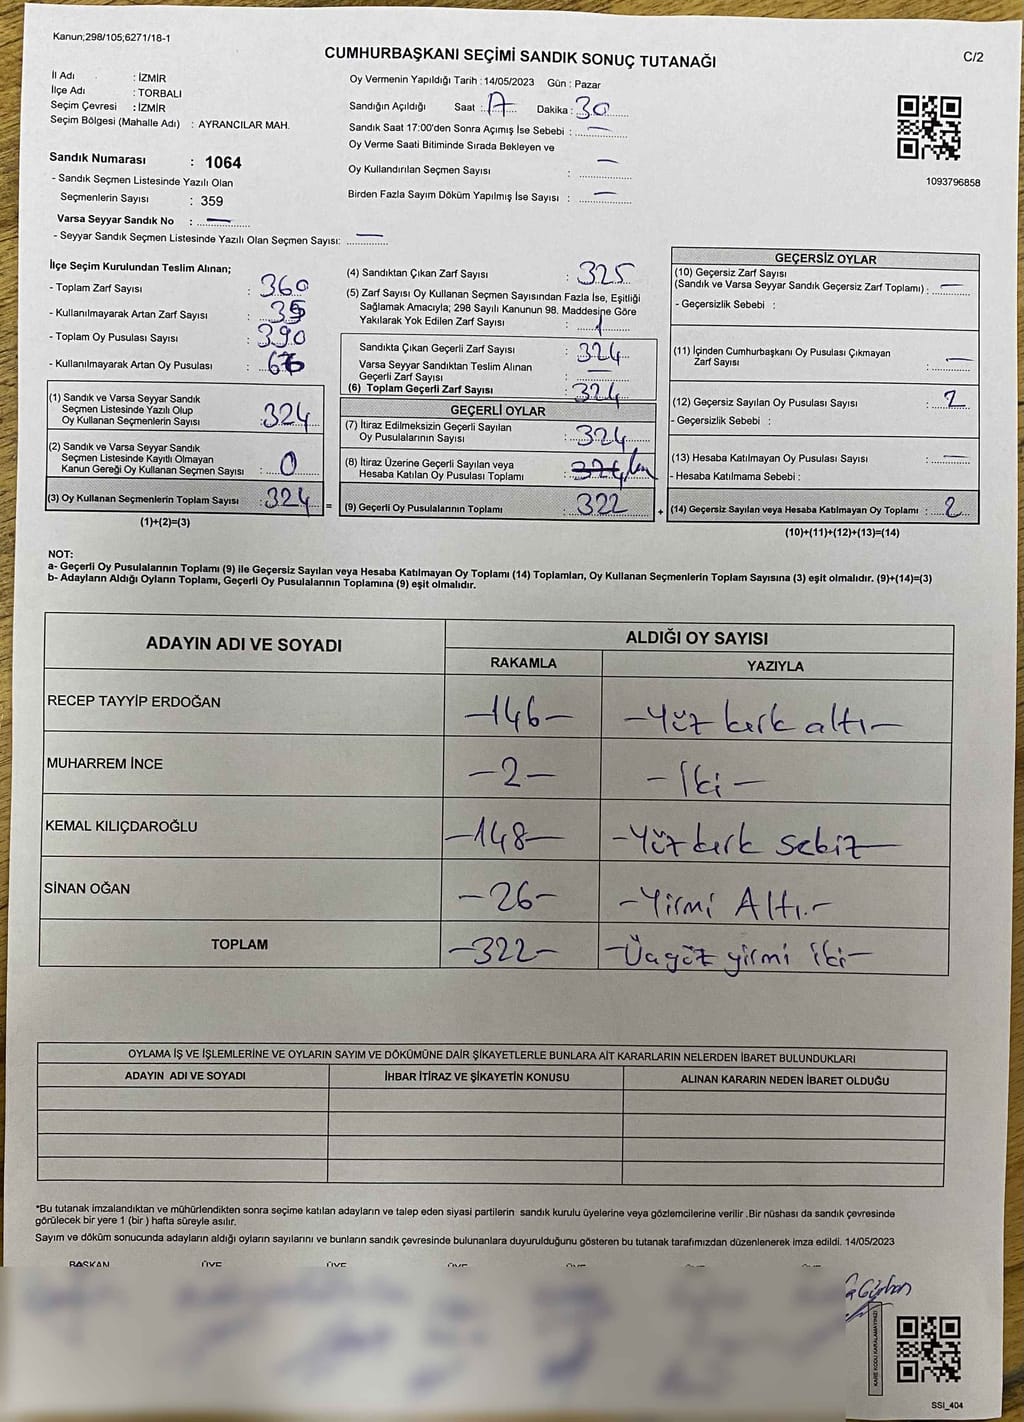 Kanun;298/105;6271/18-1
CUMHURBAŞKANI SEÇİMİ SANDIK SONUÇ TUTANAĞI
C/2
İl Adı : İZMİR
İlçe Adı : TORBALI
Seçim Çevresi : İZMİR
Seçim Bölgesi (Mahalle Adı) : AYRANCILAR MAH.
Sandık Numarası : 1064
- Sandık Seçmen Listesinde Yazılı Olan
Seçmenlerin Sayısı : 359
Varsa Seyyar Sandık No : —
- Seyyar Sandık Seçmen Listesinde Yazılı Olan Seçmen Sayısı: —
Oy Vermenin Yapıldığı Tarih : 14/05/2023 Gün : Pazar
Sandığın Açıldığı Saat : 17 Dakika : 30
Sandık Saat 17:00'den Sonra Açımış İse Sebebi : —
Oy Verme Saati Bitiminde Sırada Bekleyen ve
Oy Kullandırılan Seçmen Sayısı : —
Birden Fazla Sayım Döküm Yapılmış İse Sayısı : —
1093796858
İlçe Seçim Kurulundan Teslim Alınan;
- Toplam Zarf Sayısı : 360
- Kullanılmayarak Artan Zarf Sayısı :
- Toplam Oy Pusulası Sayısı : 390
- Kullanılmayarak Artan Oy Pusulası :
(1) Sandık ve Varsa Seyyar Sandık
Seçmen Listesinde Yazılı Olup
Oy Kullanan Seçmenlerin Sayısı : 324
(2) Sandık ve Varsa Seyyar Sandık
Seçmen Listesinde Kayıtlı Olmayan
Kanun Gereği Oy Kullanan Seçmen Sayısı : 0
(3) Oy Kullanan Seçmenlerin Toplam Sayısı : 324 =
(1)+(2)=(3)
(4) Sandıktan Çıkan Zarf Sayısı : 325
(5) Zarf Sayısı Oy Kullanan Seçmen Sayısından Fazla İse, Eşitliği
Sağlamak Amacıyla; 298 Sayılı Kanunun 98. Maddesine Göre
Yakılarak Yok Edilen Zarf Sayısı : 1
Sandıkta Çıkan Geçerli Zarf Sayısı : 324
Varsa Seyyar Sandıktan Teslim Alınan
Geçerli Zarf Sayısı : —
(6) Toplam Geçerli Zarf Sayısı : 324
GEÇERLİ OYLAR
(7) İtiraz Edilmeksizin Geçerli Sayılan
Oy Pusulalarının Sayısı : 324
(8) İtiraz Üzerine Geçerli Sayılan veya
Hesaba Katılan Oy Pusulası Toplamı :
(9) Geçerli Oy Pusulalarının Toplamı : 322 +
GEÇERSİZ OYLAR
(10) Geçersiz Zarf Sayısı
(Sandık ve Varsa Seyyar Sandık Geçersiz Zarf Toplamı) : —
- Geçersizlik Sebebi :
(11) İçinden Cumhurbaşkanı Oy Pusulası Çıkmayan
Zarf Sayısı : —
(12) Geçersiz Sayılan Oy Pusulası Sayısı : 2
- Geçersizlik Sebebi :
(13) Hesaba Katılmayan Oy Pusulası Sayısı : —
- Hesaba Katılmama Sebebi :
(14) Geçersiz Sayılan veya Hesaba Katılmayan Oy Toplamı : 2
(10)+(11)+(12)+(13)=(14)
NOT:
a- Geçerli Oy Pusulalarının Toplamı (9) ile Geçersiz Sayılan veya Hesaba Katılmayan Oy Toplamı (14) Toplamları, Oy Kullanan Seçmenlerin Toplam Sayısına (3) eşit olmalıdır. (9)+(14)=(3)
b- Adayların Aldığı Oyların Toplamı, Geçerli Oy Pusulalarının Toplamına (9) eşit olmalıdır.
ADAYIN ADI VE SOYADI
ALDIĞI OY SAYISI
RAKAMLA YAZIYLA
RECEP TAYYİP ERDOĞAN -146- -Yüz kırk altı-
MUHARREM İNCE -2- -İki-
KEMAL KILIÇDAROĞLU -148- -Yüz kırk sekiz-
SİNAN OĞAN -26- -Yirmi Altı.-
TOPLAM -322- -Üçyüz yirmi iki-
OYLAMA İŞ VE İŞLEMLERİNE VE OYLARIN SAYIM VE DÖKÜMÜNE DAİR ŞİKAYETLERLE BUNLARA AİT KARARLARIN NELERDEN İBARET BULUNDUKLARI
ADAYIN ADI VE SOYADI İHBAR İTİRAZ VE ŞİKAYETİN KONUSU ALINAN KARARIN NEDEN İBARET OLDUĞU
*Bu tutanak imzalandıktan ve mühürlendikten sonra seçime katılan adayların ve talep eden siyasi partilerin sandık kurulu üyelerine veya gözlemcilerine verilir .Bir nüshası da sandık çevresinde
görülecek bir yere 1 (bir ) hafta süreyle asılır.
Sayım ve döküm sonucunda adayların aldığı oyların sayılarını ve bunların sandık çevresinde bulunanlara duyurulduğunu gösteren bu tutanak tarafımızdan düzenlenerek imza edildi. 14/05/2023
BAŞKAN ÜYE ÜYE
KARE KODU KARALAMAYINIZ!
SSI_404